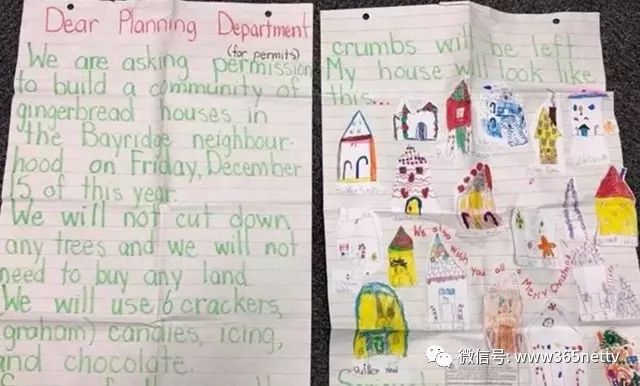 Dear Planning Department
(for permits)
We are asking permission
to build a community of
gingerbread houses in
the Bayridge neighbour-
hood on Friday, December
15 of this year.
We will not cut down
any trees and we will not
need to buy any land
We will use 6 crackers,
(graham) candies, icing,
and chocolate.
crumbs will be left
My house will look like
this...
We also wish
you all a
Merry Christmas
微信号: www365nettv